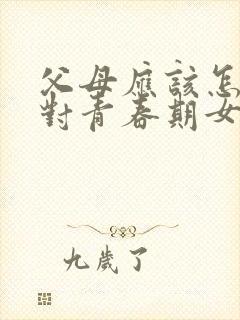 父母應該怎
對青春期女
九歲了